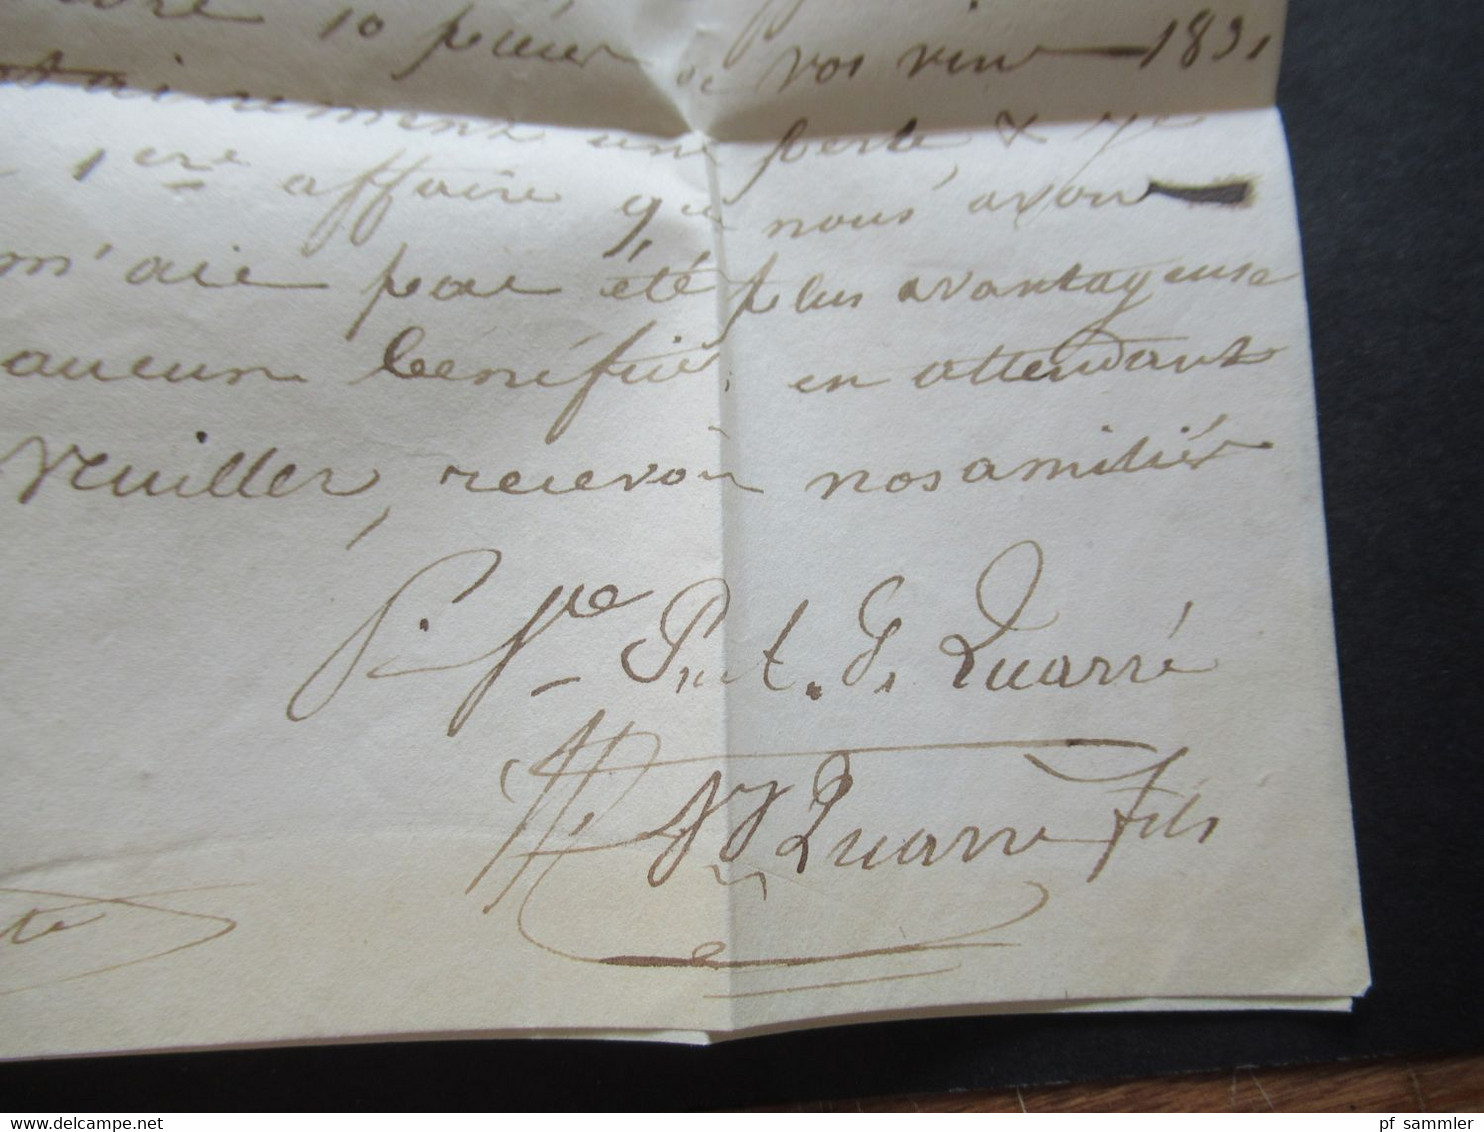 10 pièces de vos vin 1831
une perte, &
1ere affaire que nous avons
m'aie pas été plus avantageuse
aucun benéfice, en attendant
Veuiller, recevoir nos amitiés
Quarré
Quarré fils
pf sammler